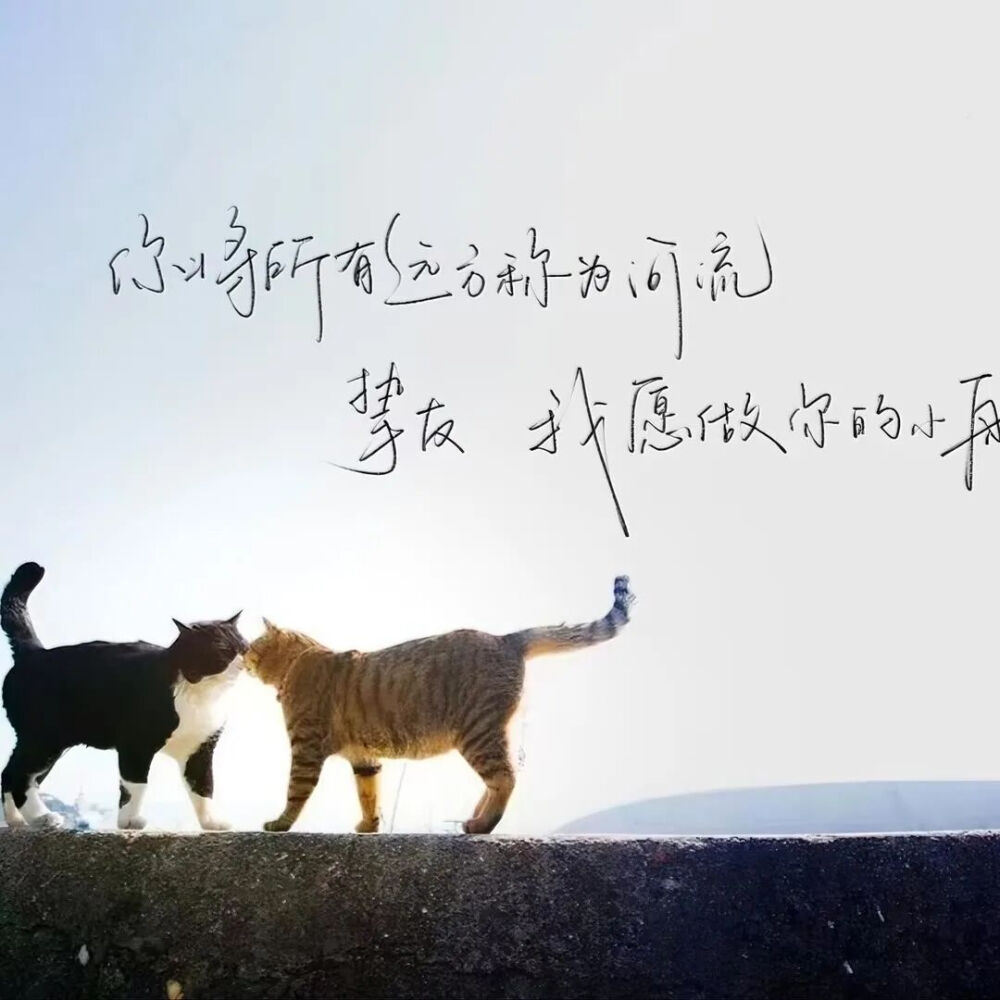 你将所有远方称为河流
挚友 我愿做你的小舟